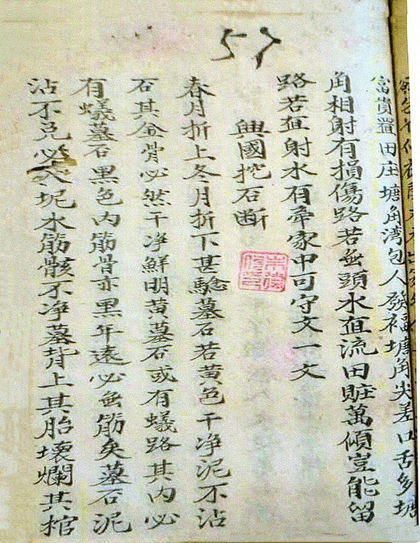 富貴置田庄塘角湾包人發福塘角尖差口舌多塘
角相射有損傷路若無頭水直流田賍萬傾豈能留
路若直射水有帝家中可守文一文
興國挖石断
春月折上冬月折下甚驗墓石若黄色干净泥不沾
石其金骨必然干净鮮明黄墓石或有蟻路其内必
有蟻墓石黑色内筋骨亦黑年遠必無筋矣墓石泥
沾不兑必入坭水筋骸不净墓背上其胎壞爛其棺